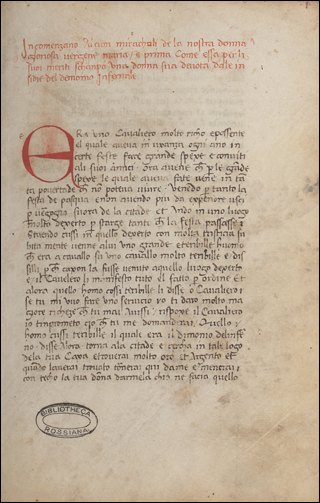 Incomenzano Alcuni mirachuli de la nostra donna
gloriosa vergene maria / e prima Come essa per li
suoi meriti schampo una donna sua devota dale in
sidie del demonio Infernale
ERA uno Cavaliero molto richo e possente
el quale aveva in usanza ogni ano in
certe feste fare grande spexe e conviti
ali suoi amici
spexe le quale aveva fate vene in ta
ta povertade non poteva vivere
festa de pasqua e non avendo piu da expendere
vergogna fuora de la citade
molto deserto star tanto che la festa passasse
Stando cossi in quello deserto con molta tristitia su
bita mente venne alui uno grande e teribile huomo
era a cavallo su uno cavallo molto teribile e di
casone la fusse venuto aquello luogo deserto
e il Cavaliero li manifesto tuto el fatto per ordine et
alora quello homo cossi teribile li disse o Cavaliero
se tu mi voi fare uno servicio io ti daro molto ma
giore richeze che tu mai Avissi rispoxe il Cavaliero
io timprometo cio che tu me domandarai Quello
homo cussi teribile il quale era il dimonio delinfer
no disse Alora torna ala citade e cercha in tal luogo
dela tua Caxa e troverai molto oro et Argento et
quando laverai trovato tornerai qui da me e menerai
con techo la tua dona darmela che ne facia quello
BIBLIOTHECA
ROSSIANA